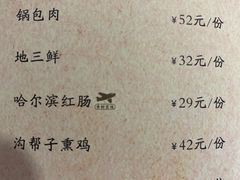 锅包肉 ¥52元/份
地三鲜 ¥32元/份
哈尔滨红肠 ¥29元/份
沟帮子熏鸡 ¥42元/份